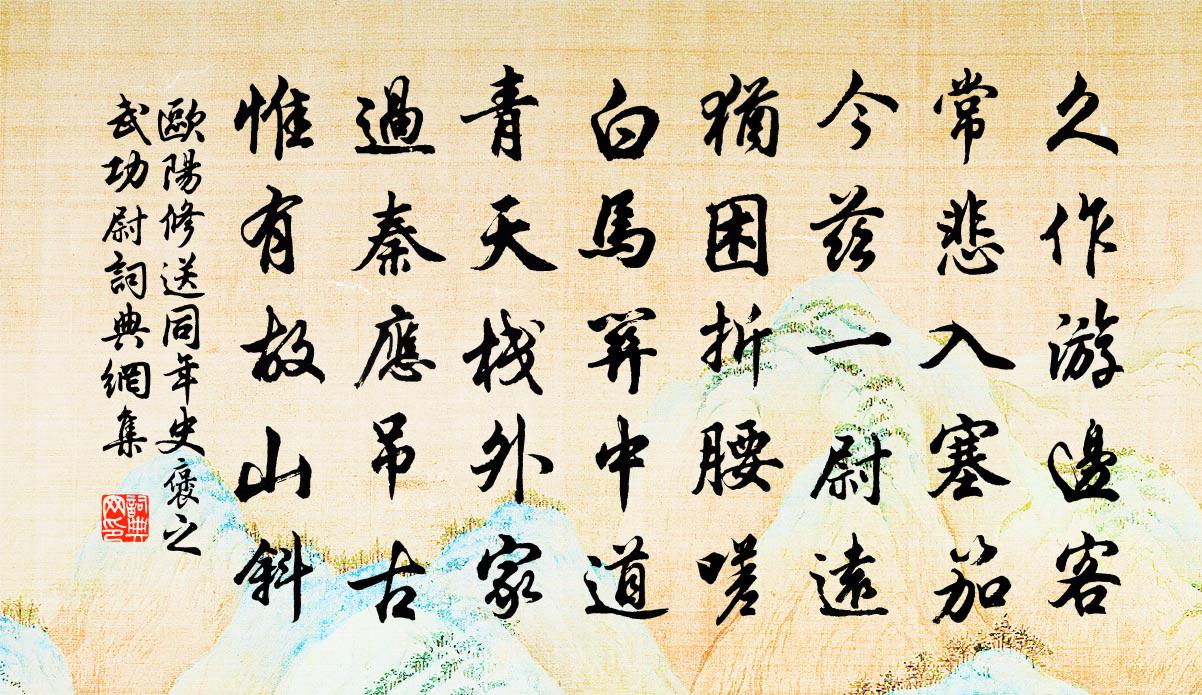 久作游邊客
常悲入塞笳
今茲一尉遠
猶困折腰嗟
白馬笄中道
青天棧外家
過秦應吊古
惟有故山斜
歐陽修送同年史褒之
武功尉詞典網集
詞典
网印